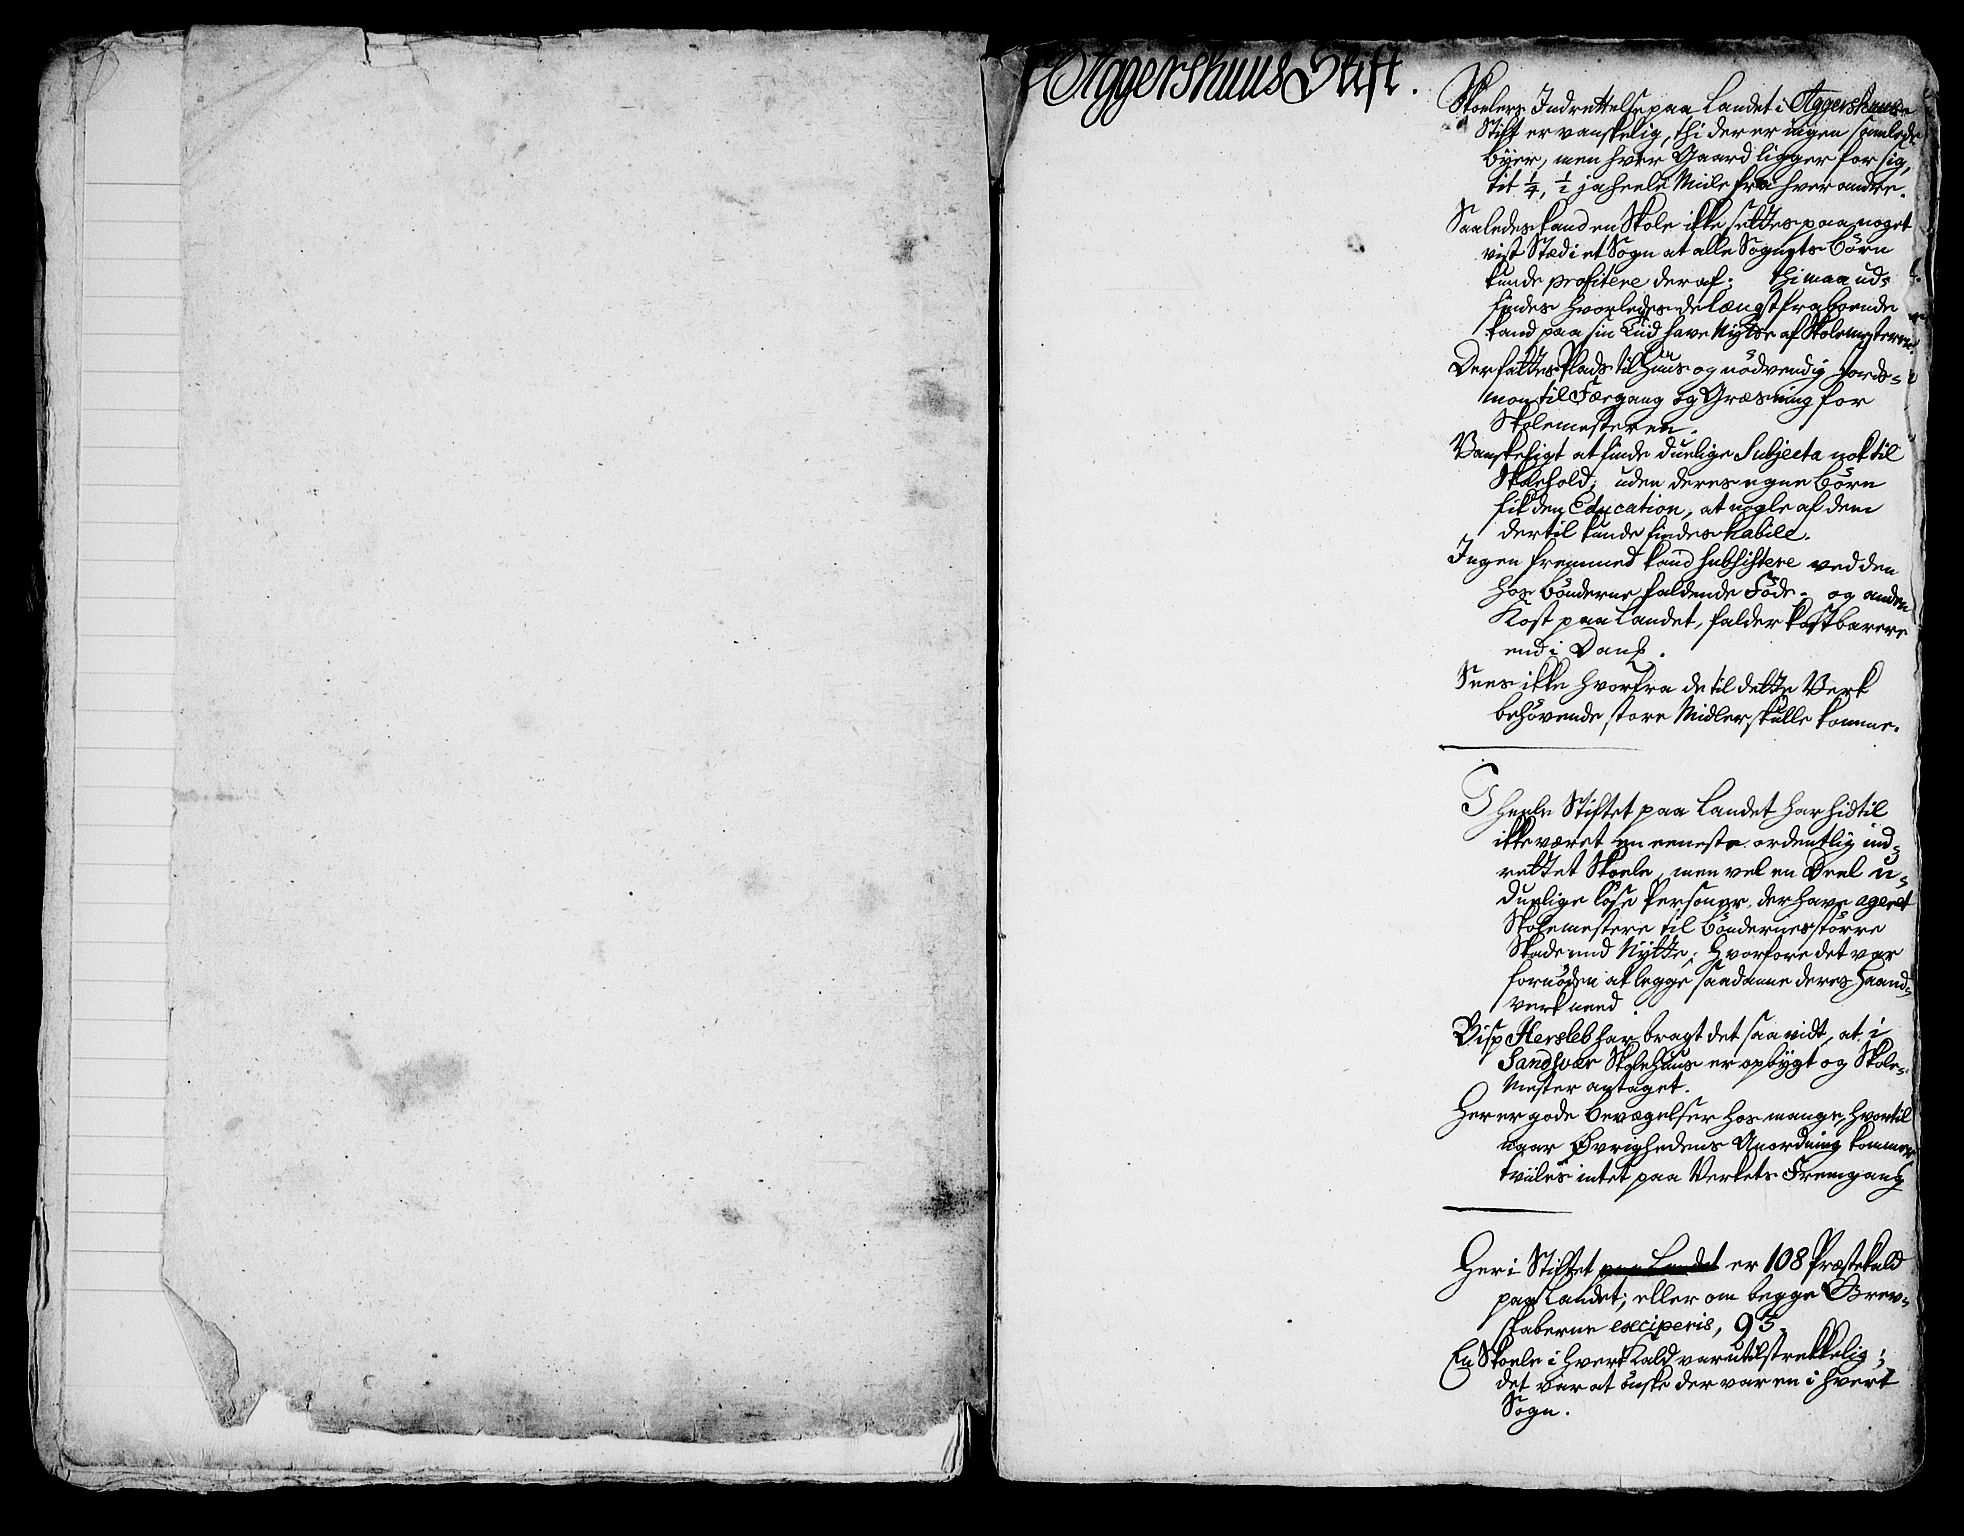 Aggershuus Stift.
Skoelers Indrettelse paa Landet i Aggershuus
Stift er vanskelig, thi der er ingen samlede
Byer, men hver Gaard ligger for sig,
tit 1/4, 1/2 ja heele Miile fra hver andre.
Saaledes kand en Skole ikke settes paa noget
vist Stæd i et Sogn at alle Sognets Børn
kunde profitere deraf; thi maa ud-
findes hvorledes de længst fraboende
kand paa sin Tiid have Nytte af Skolemesteren.
Der fattes Plads til Huus og nödvendig Jords-
mon til Færgang og Græsning for
Skolemesteren.
Vanskeligt at finde duelige Subjecta nok til
Skolehold; uden deres egne Börn
fik den Education, at nogle af dem
dertil kunde findes habile.
Ingen fremmed kand subsistere ved den
hos Bönderne faldende Föde. og anden
Kost paa Landet, falder kostbarere
end i Dank.
Sees ikke hvorfra de til dette Verk
behövende store Midler skulle komme.
I heele Stiftet paa Landet har hidtil
ikke været en eeneste ordentlig ind-
rettet Skoele, men vel en Deel u-
duelige löse Personer, der have ageret
Skolemestere til Böndernes större
Skade end Nytte; Hvorfore det var
fornöden at legge saadanne deres Haand-
verk need.
Bisp Hersleb har bragt det saa vidt, at i
Sandsvær Skolehuus er opbygt og Skole-
Mester antaget.
Her er gode Bevægelser hos mange, hvortil
naar Øvrighedens Anordning kommer
tviiles intet paa Verkets Fremgang
Her i Stiftet paa Landet er 108 Præstekald
paa Landet; eller om begge Grev-
skaberne exciperis, 95.
En Skoele i hvert Kald var utilstrekkelig;
det var at önske der var en i hvert
Sogn.